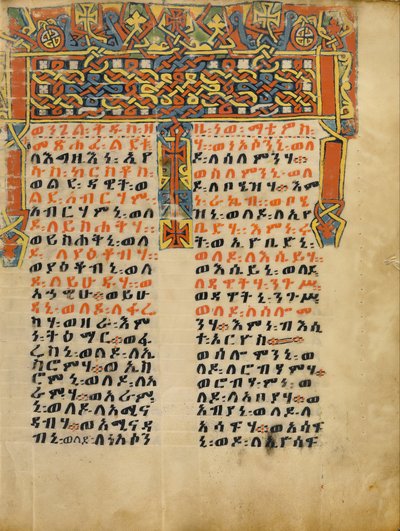 ወንጌል፡ቅዱስ፡ዘ
መጽሐፈ፡ልደቱ፡
ለእግዚእነ፡ኢየ
ሱስ፡ክርስቶስ፡
ወልደ፡ዳዊት፡ወ
ልደ፡አብርሃም፡፡
አብርሃምኒ፡ወለ
ዶ፡ለይስሐቅሃ፡፡
ወይስሐቅኒ፡ወለ
ዶ፡ለያዕቆብሃ፡፡
ወያዕቆብኒ፡ወለ
ዶ፡ለይሁዳሃ፡፡ወ
አኃዊሁ፡፡ወይሁ
ዳኒ፡ወለዶ፡ለፋሬ
ስሃ፡ወዘራ፡እም
ትዕማር፡፡ወፋ
ሬስኒ፡ወለዶ፡ለኤ
ስሮምሃ፡፡ወኤስ
ሮምኒ፡ወለዶ፡ለአ
ራምሃ፡፡ወአራም
ኒ፡ወለዶ፡ለአሚና
ዳብሃ፡፡ወአሚናዳ
ብኒ፡ወለዶ፡ለነአሶን
ዜነወ፡ማቴዎስ፡
ሃ፡፡ወነአሶንኒ፡ወለ
ዶ፡ለሰልሞንሃ፡፡
ወሰልሞንኒ፡ወለ
ዶ፡ለቦዔዝሃ፡እም
ነ፡ራኬብ፡፡ወቦዔ
ዝኒ፡ወለዶ፡ለኢዮ
ቤድሃ፡እምነ፡ሩ
ት፡፡ወኢዮቤድኒ፡
ወለዶ፡ለእሴይሃ፡፡
ወእሴይኒ፡ወለዶ፡
ለዳዊትሃ፡ንጉሥ
ወዳዊትኒ፡ንጉሥ
ወለዶ፡ለሰሎሞ
ንሃ፡፡እምነ፡ብእሲ
ተ፡ኦርዮ፡፡
ወሰሎሞንኒ፡ወለ
ዶ፡ለሮብዓምሃ፡፡
ወሮብዓምኒ፡ወለ
ዶ፡ለአብያሃ፡፡ወ
አብያኒ፡ወለዶ፡ለ
አሳፍሃ፡፡ወአሳፍ
ኒ፡ወለዶ፡ለኢዮሳፍ